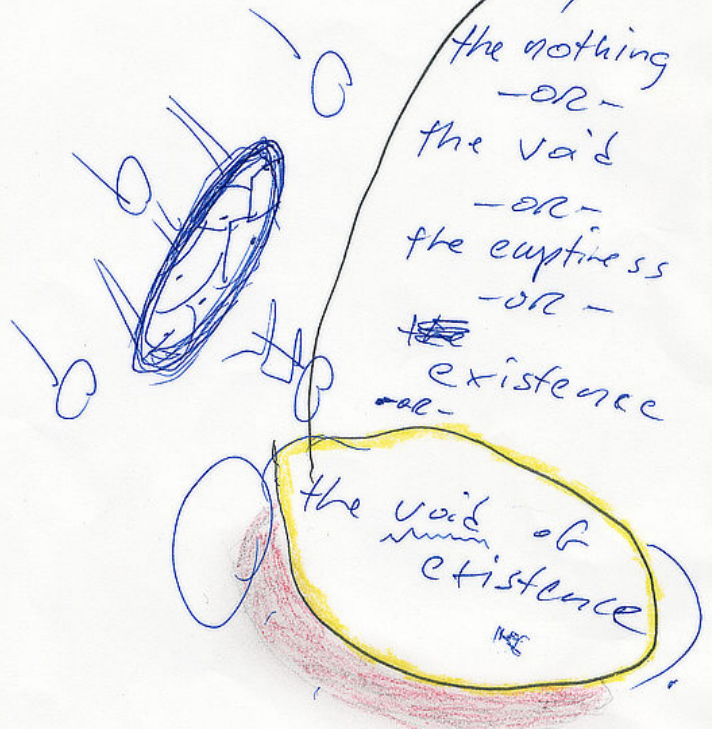 the nothing
-OR-
the void
-OR-
the emptiness
-OR-
existence
-OR-
the void of
existence